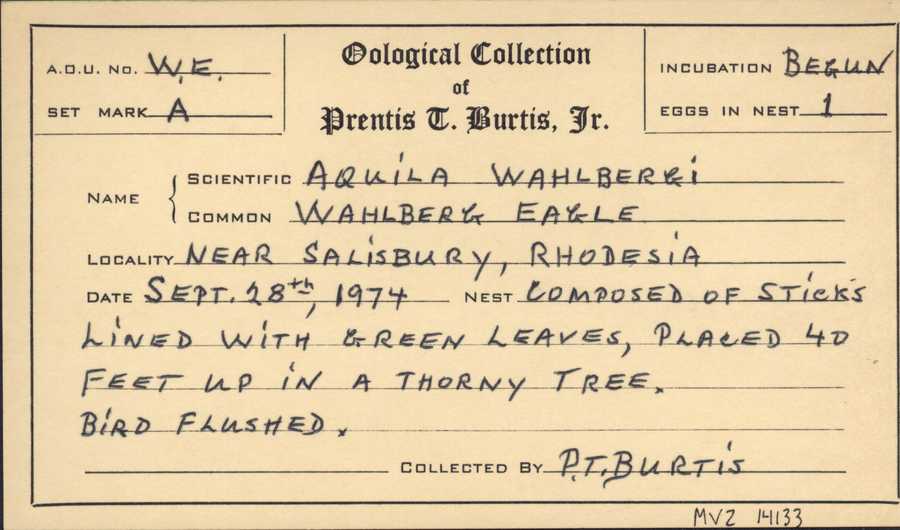 A.O.U. No. W.E.
SET MARK A
Oological Collection
of
Prentis T. Burtis, Jr.
INCUBATION BEGUN
EGGS IN NEST 1
NAME
SCIENTIFIC AQUILA WAHLBERGI
COMMON WAHLBERG EAGLE
LOCALITY NEAR SALISBURY, RHODESIA
DATE SEPT. 28th, 1974 NEST COMPOSED OF STICKS
LINED WITH GREEN LEAVES, PLACED 40
FEET UP IN A THORNY TREE.
BIRD FLUSHED.
COLLECTED BY P.T. BURTIS
MVZ 14133